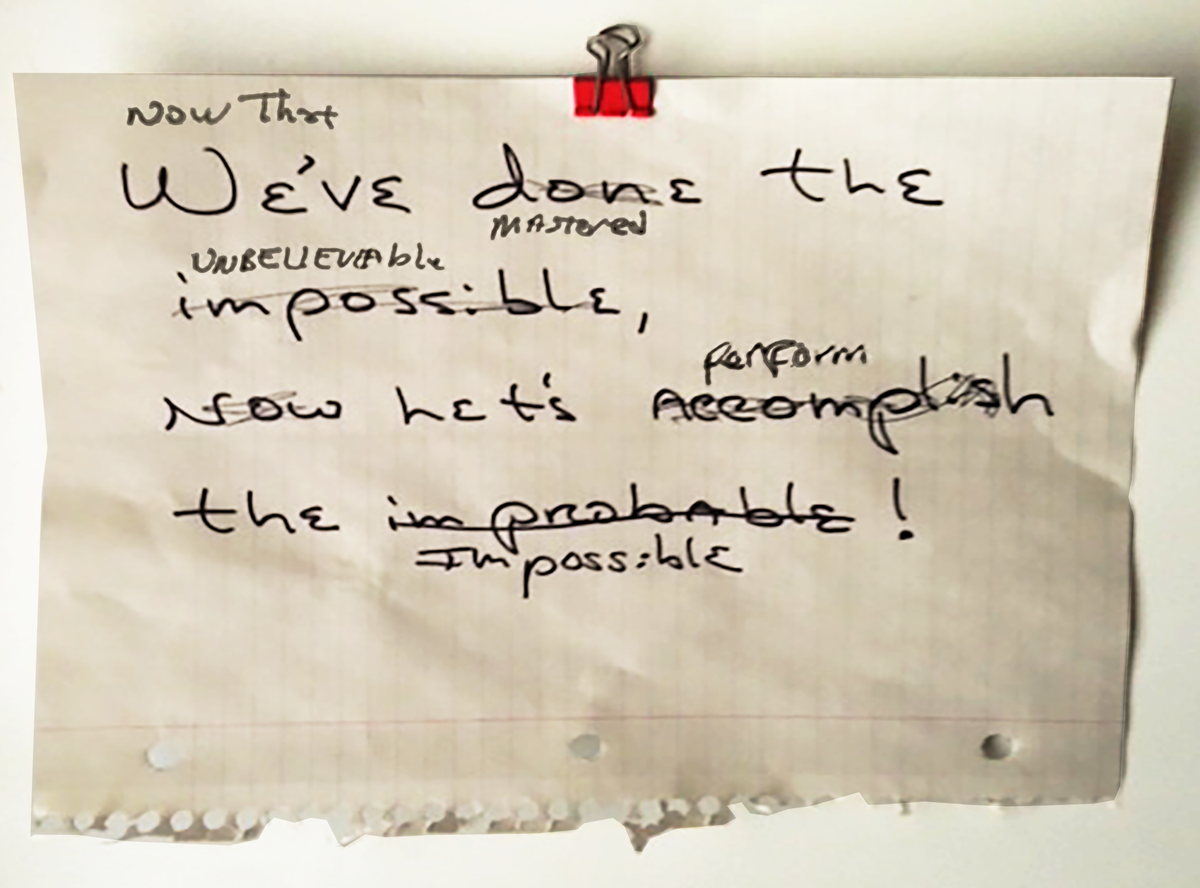 Now That
We've done the
mastered
UNBELIEVEAble
impossible,
perform
Now let's Accomplish
the improbAble !
Impossible